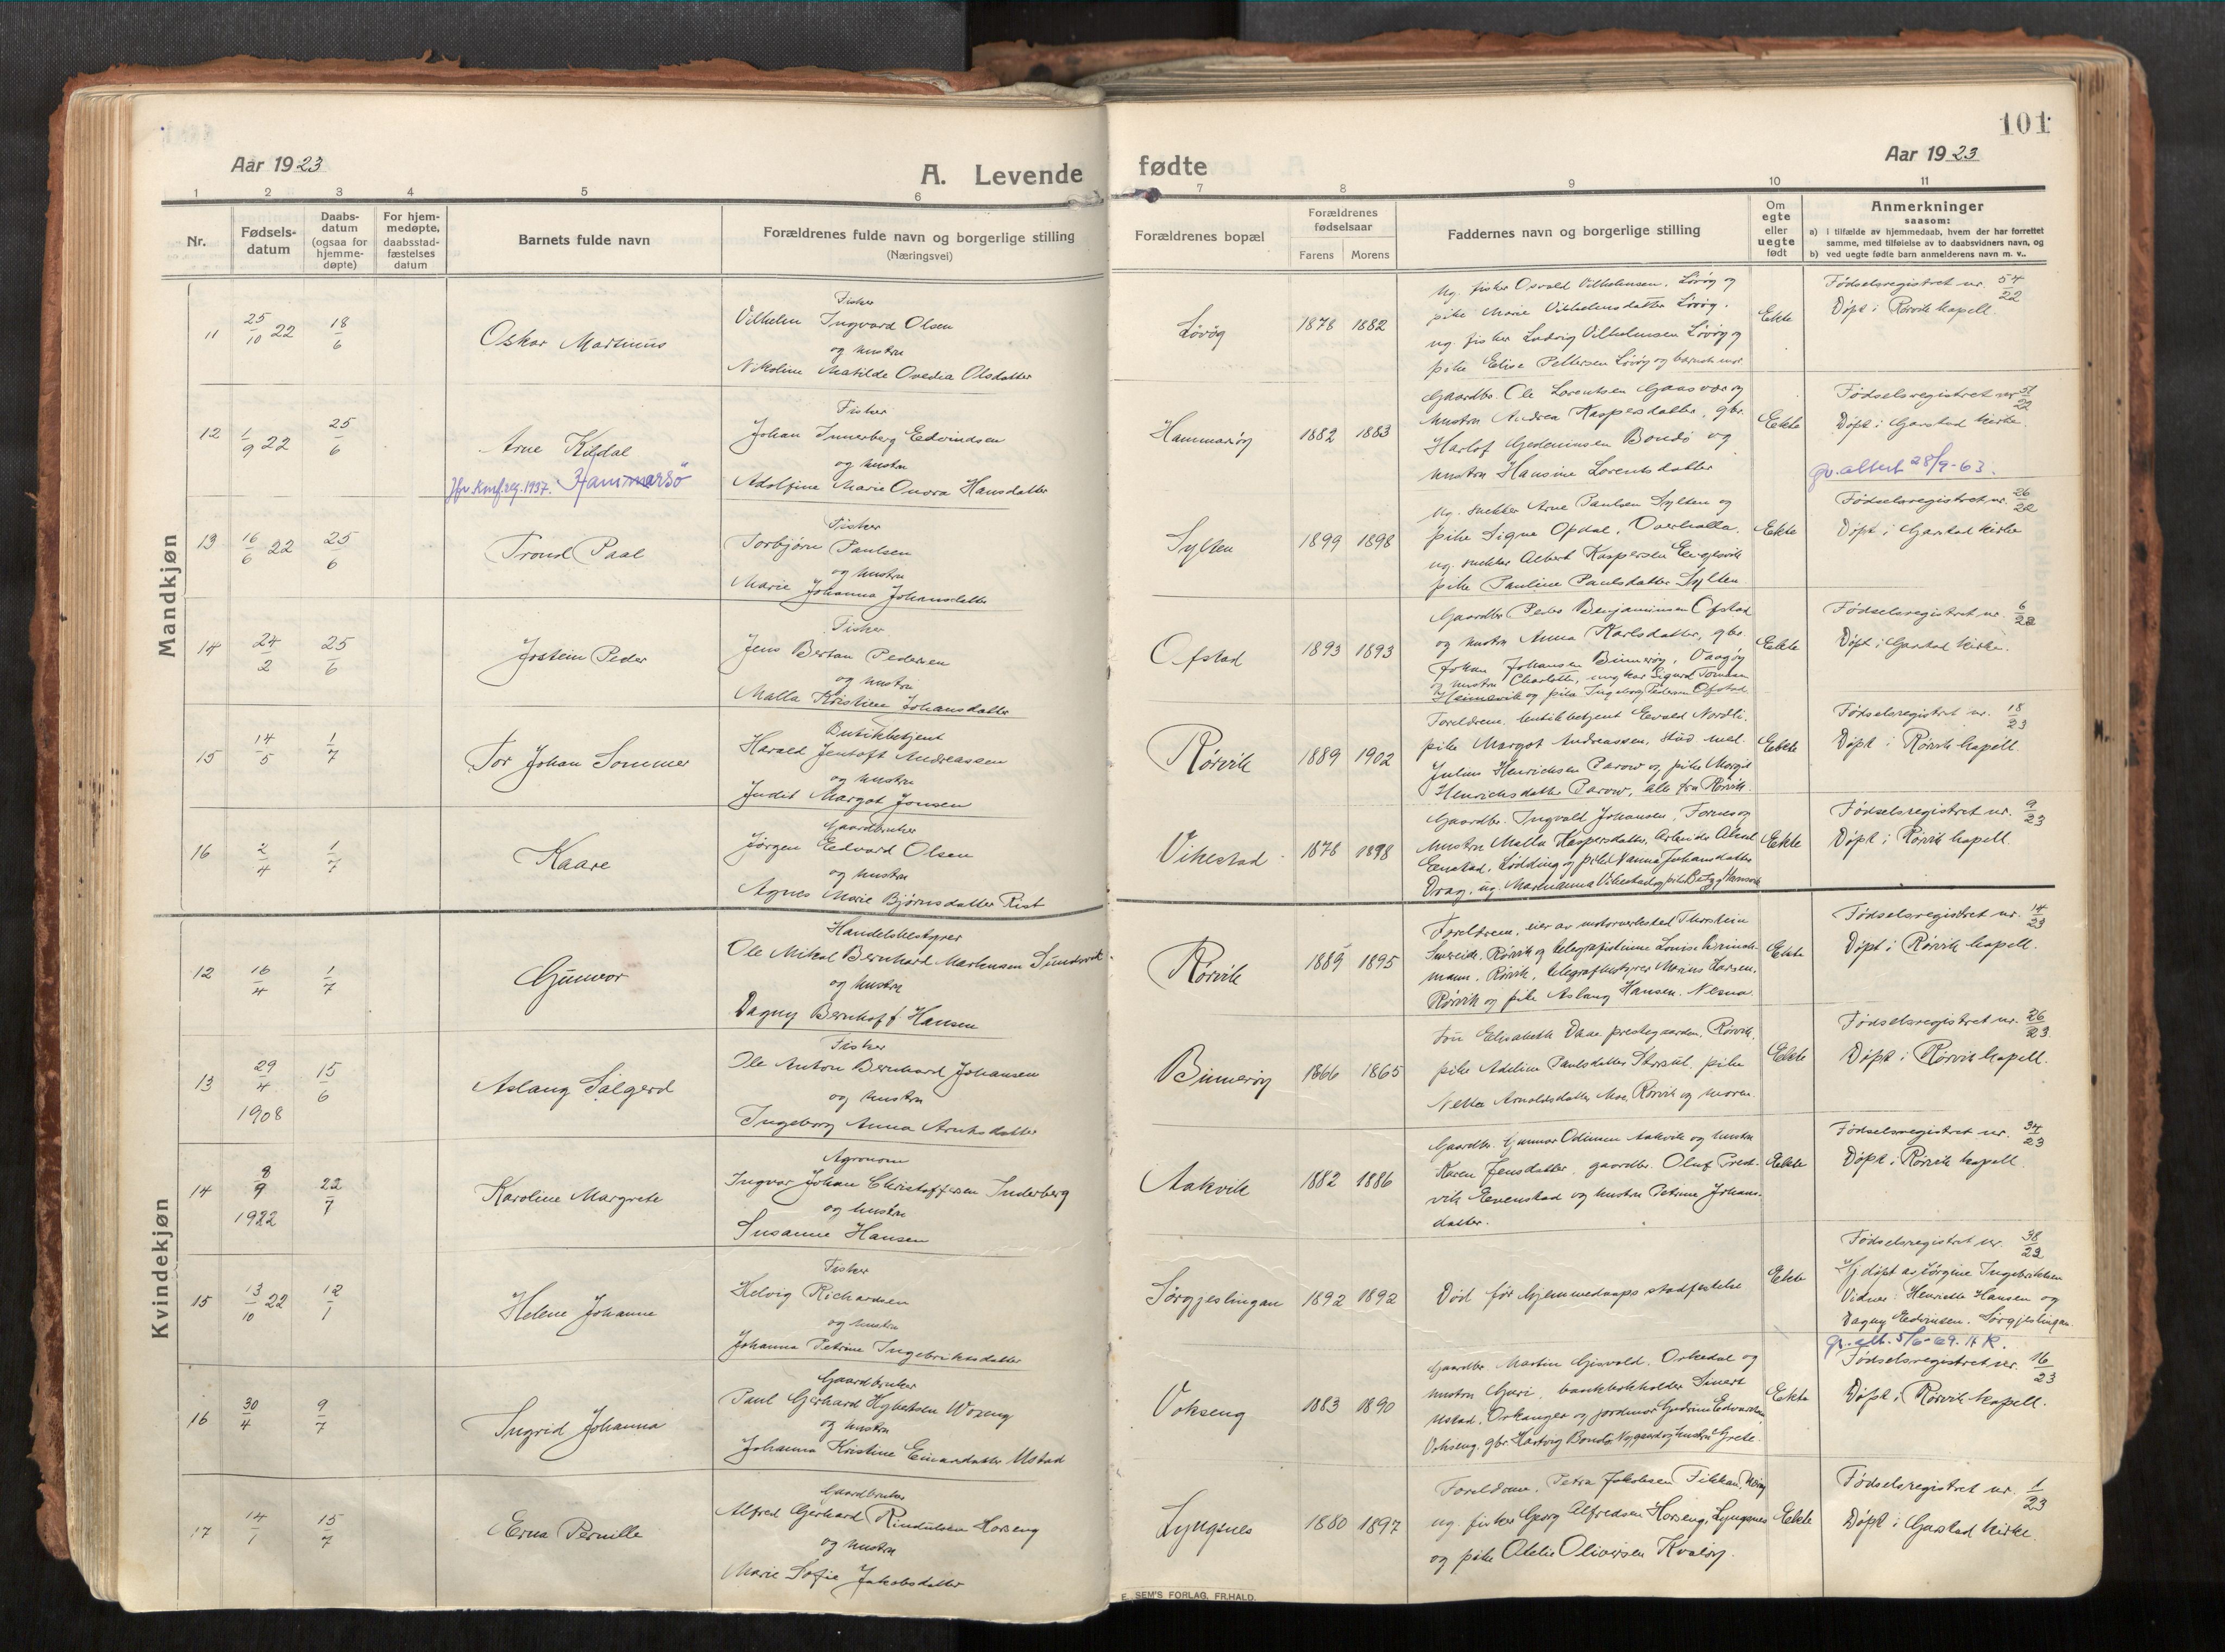 101
Aar 1923
A. Levende
fødte
Aar 1923
1 2 3 4 5 6 7 8 9 10 11
Nr.
Fødsels-
datum
Daabs-
datum
(ogsaa for
hjemme-
døpte)
For hjem-
medøpte,
daabsstad-
fæstelses
datum
Barnets fulde navn
Forældrenes fulde navn og borgerlige stilling
(Næringsvei)
Forældrenes bopæl
Forældrenes
fødselsaar
Farens Morens
Faddernes navn og borgerlige stilling
Om
egte
eller
uegte
født
Anmerkninger
saasom:
a) i tilfælde av hjemmedaab, hvem der har forrettet
samme, med tilføielse av to daabsvidners navn, og
b) ved uegte fødte barn anmelderens navn m. v..
Mandkjøn
11 25/10 22 18/6
Oskar Martinus
Fisker
Vilhelm Ingvard Olsen
og hustru
Nikoline Matilde Ovedia Olsdatter
Lövög
1878 1882
Ug. fisker Osvald Vilhelmsen, Lövög og
pike Marie Vilhelmsdatter Lövög,
ug. fisker Ludvig Vilhelmsen Lövög og
pike Elise Pettersen Lövög og barnets mor.
Ekte
Fødselsregistret nr. 54/22
Døpt i Rørvik kapell.
12 1/9 22 25/6
Arne Kildal
Jfr. Konf.reg. 1937. Hammarsö
Fisker
Johan Innerberg Edvindsen
og hustru
Adolfine Marie Onora Hansdatter
Hammarøy
1882 1883
Gaardbr. Ole Lorentsen Gaasvær og
hustru Andrea Kaspersdatter, gbr.
Harlof Gedeonsen Bondø og
hustru Hansine Lorentsdatter
Ekte
Fødselsregistret nr. 51/22
Døpt i Garstad kirke.
gv. attest 28/9-63.
13 16/6 22 25/6
Trond Paal
Fisker
Torbjørn Paulsen
og hustru
Marie Johanna Johansdatter
Sylten
1899 1898
Ug. snekker Arne Paulsen Sylten og
pike Signe Opdal, Overhalla.
ug. snekker Albert Kaspersen Engesvik
pike Pauline Paulsdatter Sylten
Ekte
Fødselsregistret nr. 26/22
Døpt i Garstad kirke
14 24/2 25/6
Jostein Peder
Fisker
Jens Bertan Pedersen
og hustru
Malla Kristine Johansdatter
Ofstad
1893 1893
Gaardbr. Peder Benjaminsen Ofstad
og hustru Anna Karlsdatter, gbr.
Johan Johansen Binnerøy, Vaagøy
og hustru Charlotte, ungkar Sigurd Tomasen
Heimsvik og pike Ingeborg Pedersen Ofstad.
Ekte
Fødselsregistret nr. 6/22
Døpt i Garstad kirke.
15 14/5 1/7
Tor Johan Sommer
Butikbetjent
Harald Jentoft Andreassen
og hustru
Judit Margot Jonsen
Rørvik
1889 1902
Foreldrene, butikbetjent Edvald Nordli,
pike Margot Andreassen, stud. med.
Julius Henrichsen Parow og pike Margit
Henrichsdatter Parow, alle fra Rørvik.
Ekte
Fødselsregistret nr. 18/23
Døpt i Rørvik kapell.
16 2/4 1/7
Kaare
Gaardbruker
Jørgen Edvard Olsen
og hustru
Agnes Marie Bjørnsdatter Rist
Vikestad
1878 1898
Gaardbr. Ingvald Johansen, Fornes og
hustru Malla Kaspersdatter, Arbeider Aksel
Evenstad, Lødding og pike Nanna Johansdatter
Drag, ug. Marianna Vikestad og pike
Ekte
Fødselsregistret nr. 9/23
Døpt i Rørvik kapell.
Kvindekjøn
12 16/4 1/7
Gunvor
Handelsbestyrer
Ole Mikal Bernhard Markussen Sundsvik
og hustru
Dagny Bernhoff Hansen
Rørvik
1889 1895
Foreldrene, eier av motorverksted Thorstein
Smevik, Rørvik og telegrafistinne Louise Brinch-
mann, Rørvik, telegrafbestyrer Marius Larsen,
Rørvik og pike Aslaug Hansen. Nesna.
Ekte
Fødselsregistret nr. 14/23
Døpt i Rørvik kapell.
13 29/4 1908 15/6
Aslaug Salgerd
Fisker
Ole Anton Bernhard Johansen
og hustru
Ingeborg Anna Arntsdatter
Binnerøy
1866 1865
Fru Elisabeth Daae prestegaarden, Rørvik,
pike Adeline Paulsdatter, pike
Netta Arnoldsdatter Moe, Rørvik og moren.
Ekte
Fødselsregistret nr. 26/23
Døpt i Rørvik kapell.
14 8/9 1922 22/7
Karoline Margrete
Agronom
Ingvar Johan Christoffersen Inderberg
og hustru
Susanne Hansen
Aakvik
1882 1886
Gaardbr. Gunnar Odinsen Aakvik og hustru
Karen Jensdatter, gaardbr. Oluf Prest-
vik Evenstad og hustru Petrine Johans-
datter.
Ekte
Fødselsregistret nr. 34/23
Døpt i Rørvik kapell.
15 13/10 22 12/1
Helene Johanne
Fisker
Helvig Richardsen
og hustru
Johanna Petrine Ingebriktsdatter
Sørgjeslingan
1892 1892
Død før hjemmedaaps stadfestelse
Ekte
Fødselsregistret nr. 38/22
Hj. døpt av Jørgine Ingebriktsen
Vidner: Henriette Hansen og
Dagny Edvinsen. Sørgjeslingan.
16 30/4 9/7
Ingrid Johanna
Gaardbruker
Paul Gerhard Hybertsen Woxeng
og hustru
Johanna Kristine Einarsdatter Ustad
Vokseng
1883 1890
Gaardbr. Martin Gisvold, Orkedal og
hustru Guri, bankbokholder Sivert
Ustad, Orkanger og jordmor Gudrun Edvardsen
Vokseng, gbr. Hartvig Bondø Nygaard og hustru Grete.
Ekte
gv. att. 5/6-69. H.K.
Fødselsregistret nr. 16/23
Døpt i Rørvik kapell.
17 14/1 15/7
Erna Pernille
Gaardbruker
Alfred Gerhard Rindulsen Horseng
og hustru
Marie Sofie Jakobsdatter
Lyngsnes
1880 1897
Foreldrene, Petra Jakobsen Fikkan,
ug. fisker Georg Alfredsen Horseng, Lyngsnes
og pike Otelie Oliversen Kvaløy.
Ekte
Fødselsregistret nr. 1/23
Døpt i Garstad kirke.
E. SEM'S FORLAG, FR.HALD.